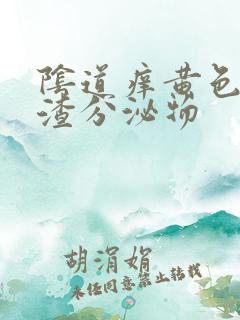 陰道痒黄色
渣分泌物
胡涓娟
未任同意禁止转载